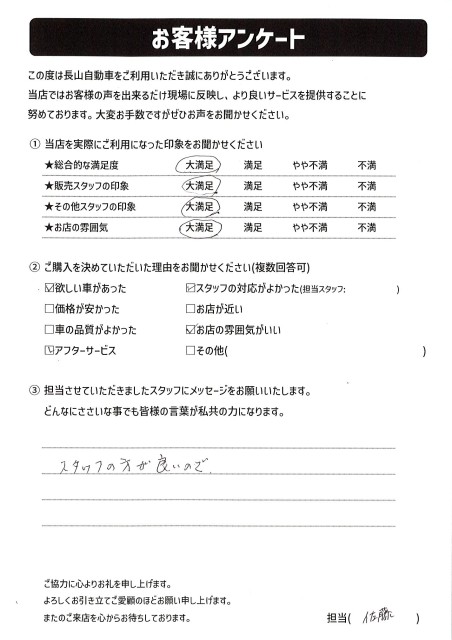 お客様アンケート
この度は長山自動車をご利用いただき誠にありがとうございます。
当店ではお客様の声を出来るだけ現場に反映し、より良いサービスを提供することに
努めております。大変お手数ですがぜひお声をお聞かせください。
① 当店を実際にご利用になった印象をお聞かせください
★総合的な満足度 大満足 満足 やや不満 不満
★販売スタッフの印象 大満足 満足 やや不満 不満
★その他スタッフの印象 大満足 満足 やや不満 不満
★お店の雰囲気 大満足 満足 やや不満 不満
② ご購入を決めていただいた理由をお聞かせください(複数回答可)
☑欲しい車があった ☑スタッフの対応がよかった(担当スタッフ: )
□価格が安かった □お店が近い
□車の品質がよかった ☑お店の雰囲気がいい
☑アフターサービス □その他( )
③ 担当させていただきましたスタッフにメッセージをお願いいたします。
どんなにささいな事でも皆様の言葉が私共の力になります。
スタッフの方が良いので.
ご協力に心よりお礼を申し上げます。
よろしくお引き立てご愛顧のほどお願い申し上げます。
またのご来店を心からお待ちしております。 担当( 佐藤 )